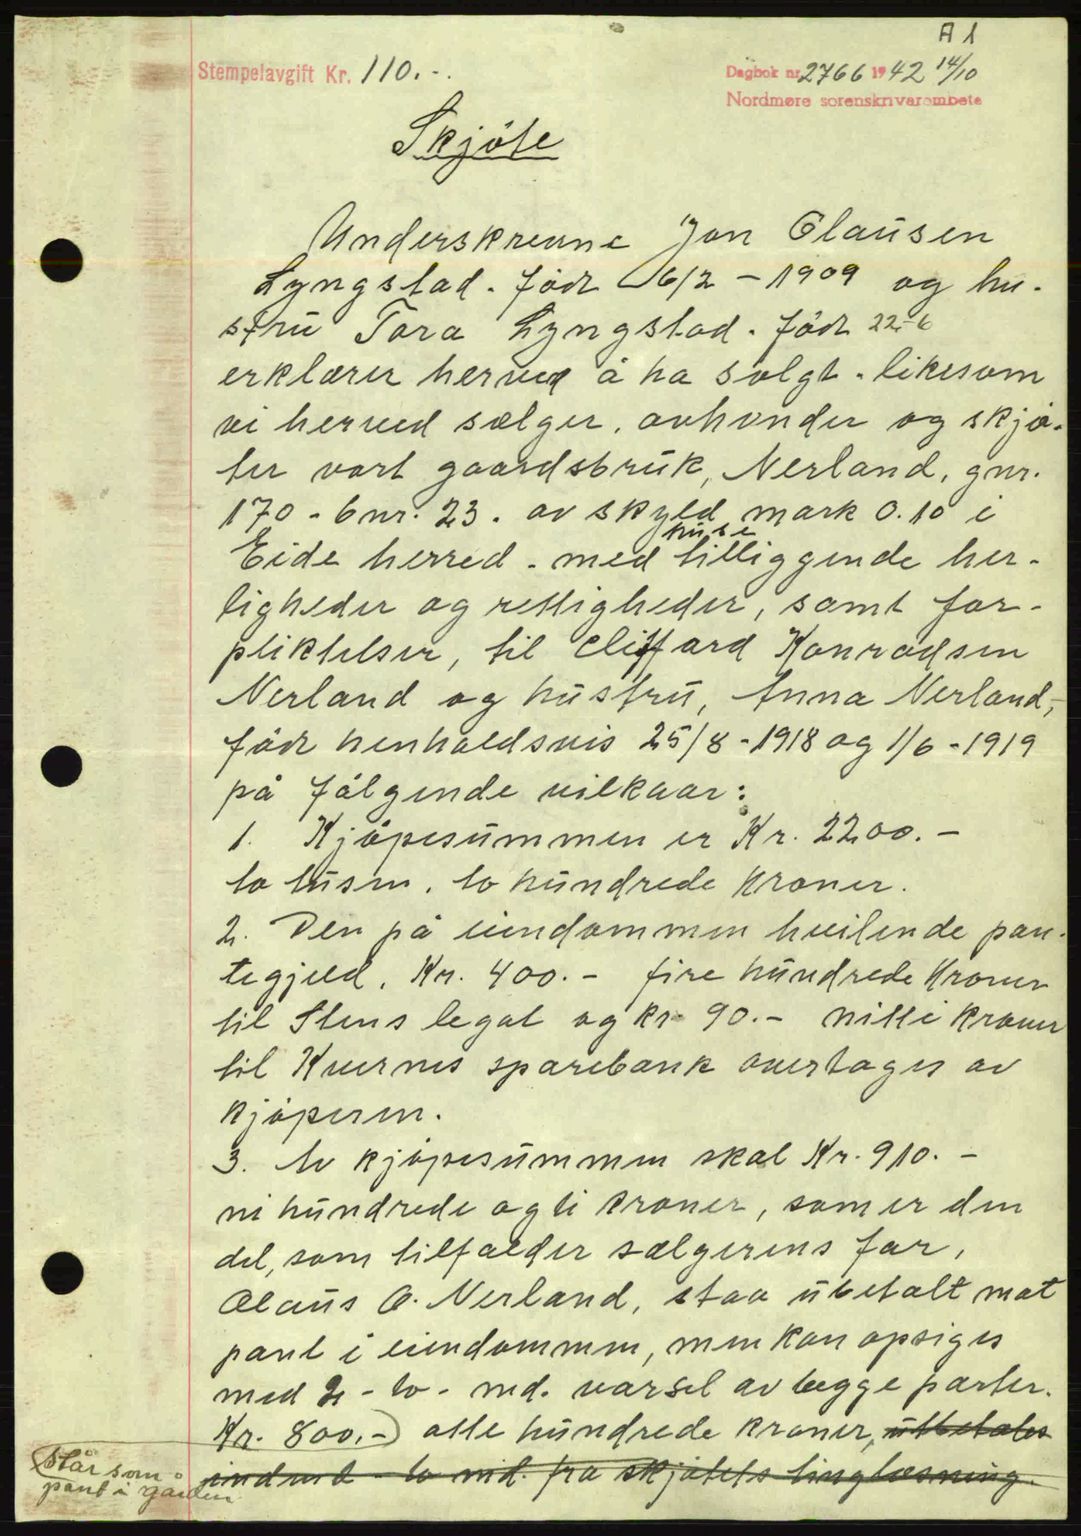 A 1
Stempelavgift Kr. 110.-.
Dagbok nr 2766 1942 14/10
Nordmøre sorenskrivarembete
Skjøte
Underskrevne Jon Olausen
Lyngstad. född 16/2 - 1909 og hu-
stru Tora Lyngstad. född 22-6
erklærer herved å ha solgt. likesom
vi herved sælger, avhender og skjø-
ter vort gaardsbruk, Nerland, gnr.
170 - bnr. 23. av skyld mark 0.10 i
huse
Eide herred - med tilliggende her-
ligheder og rettigheder, samt for-
pliktelser, til Cliffard Konradsen
Nerland og hustru, Anna Nerland,-
född henholdsvis 25/8 - 1918 og 1/6 - 1919
på følgende vilkaar:
1. Kjøpesummen er Kr. 2200.-
to tusen. to hundrede kroner.
2. Den på eiendommen hvilende pan-
tegjeld, Kr. 400.- fire hundrede Kroner
til Stens legat og kr 90.- nitti kroner
til Kvernes sparebank overtages av
kjøperen.
3. Av kjøpesummen skal Kr. 910.-
ni hundrede og ti kroner, som er den
del, som tilfalder sælgerens far,
Olaus O. Nerland, staa ubetalt mot
pant i eiendommen, men kan opsiges
med 2 - to - md. varsel av begge parter.
Kr. 800.- otte hundrede kroner, utbetales
innen 2 - to md. fra skjøtets tinglæsning.
står som
pant i garden